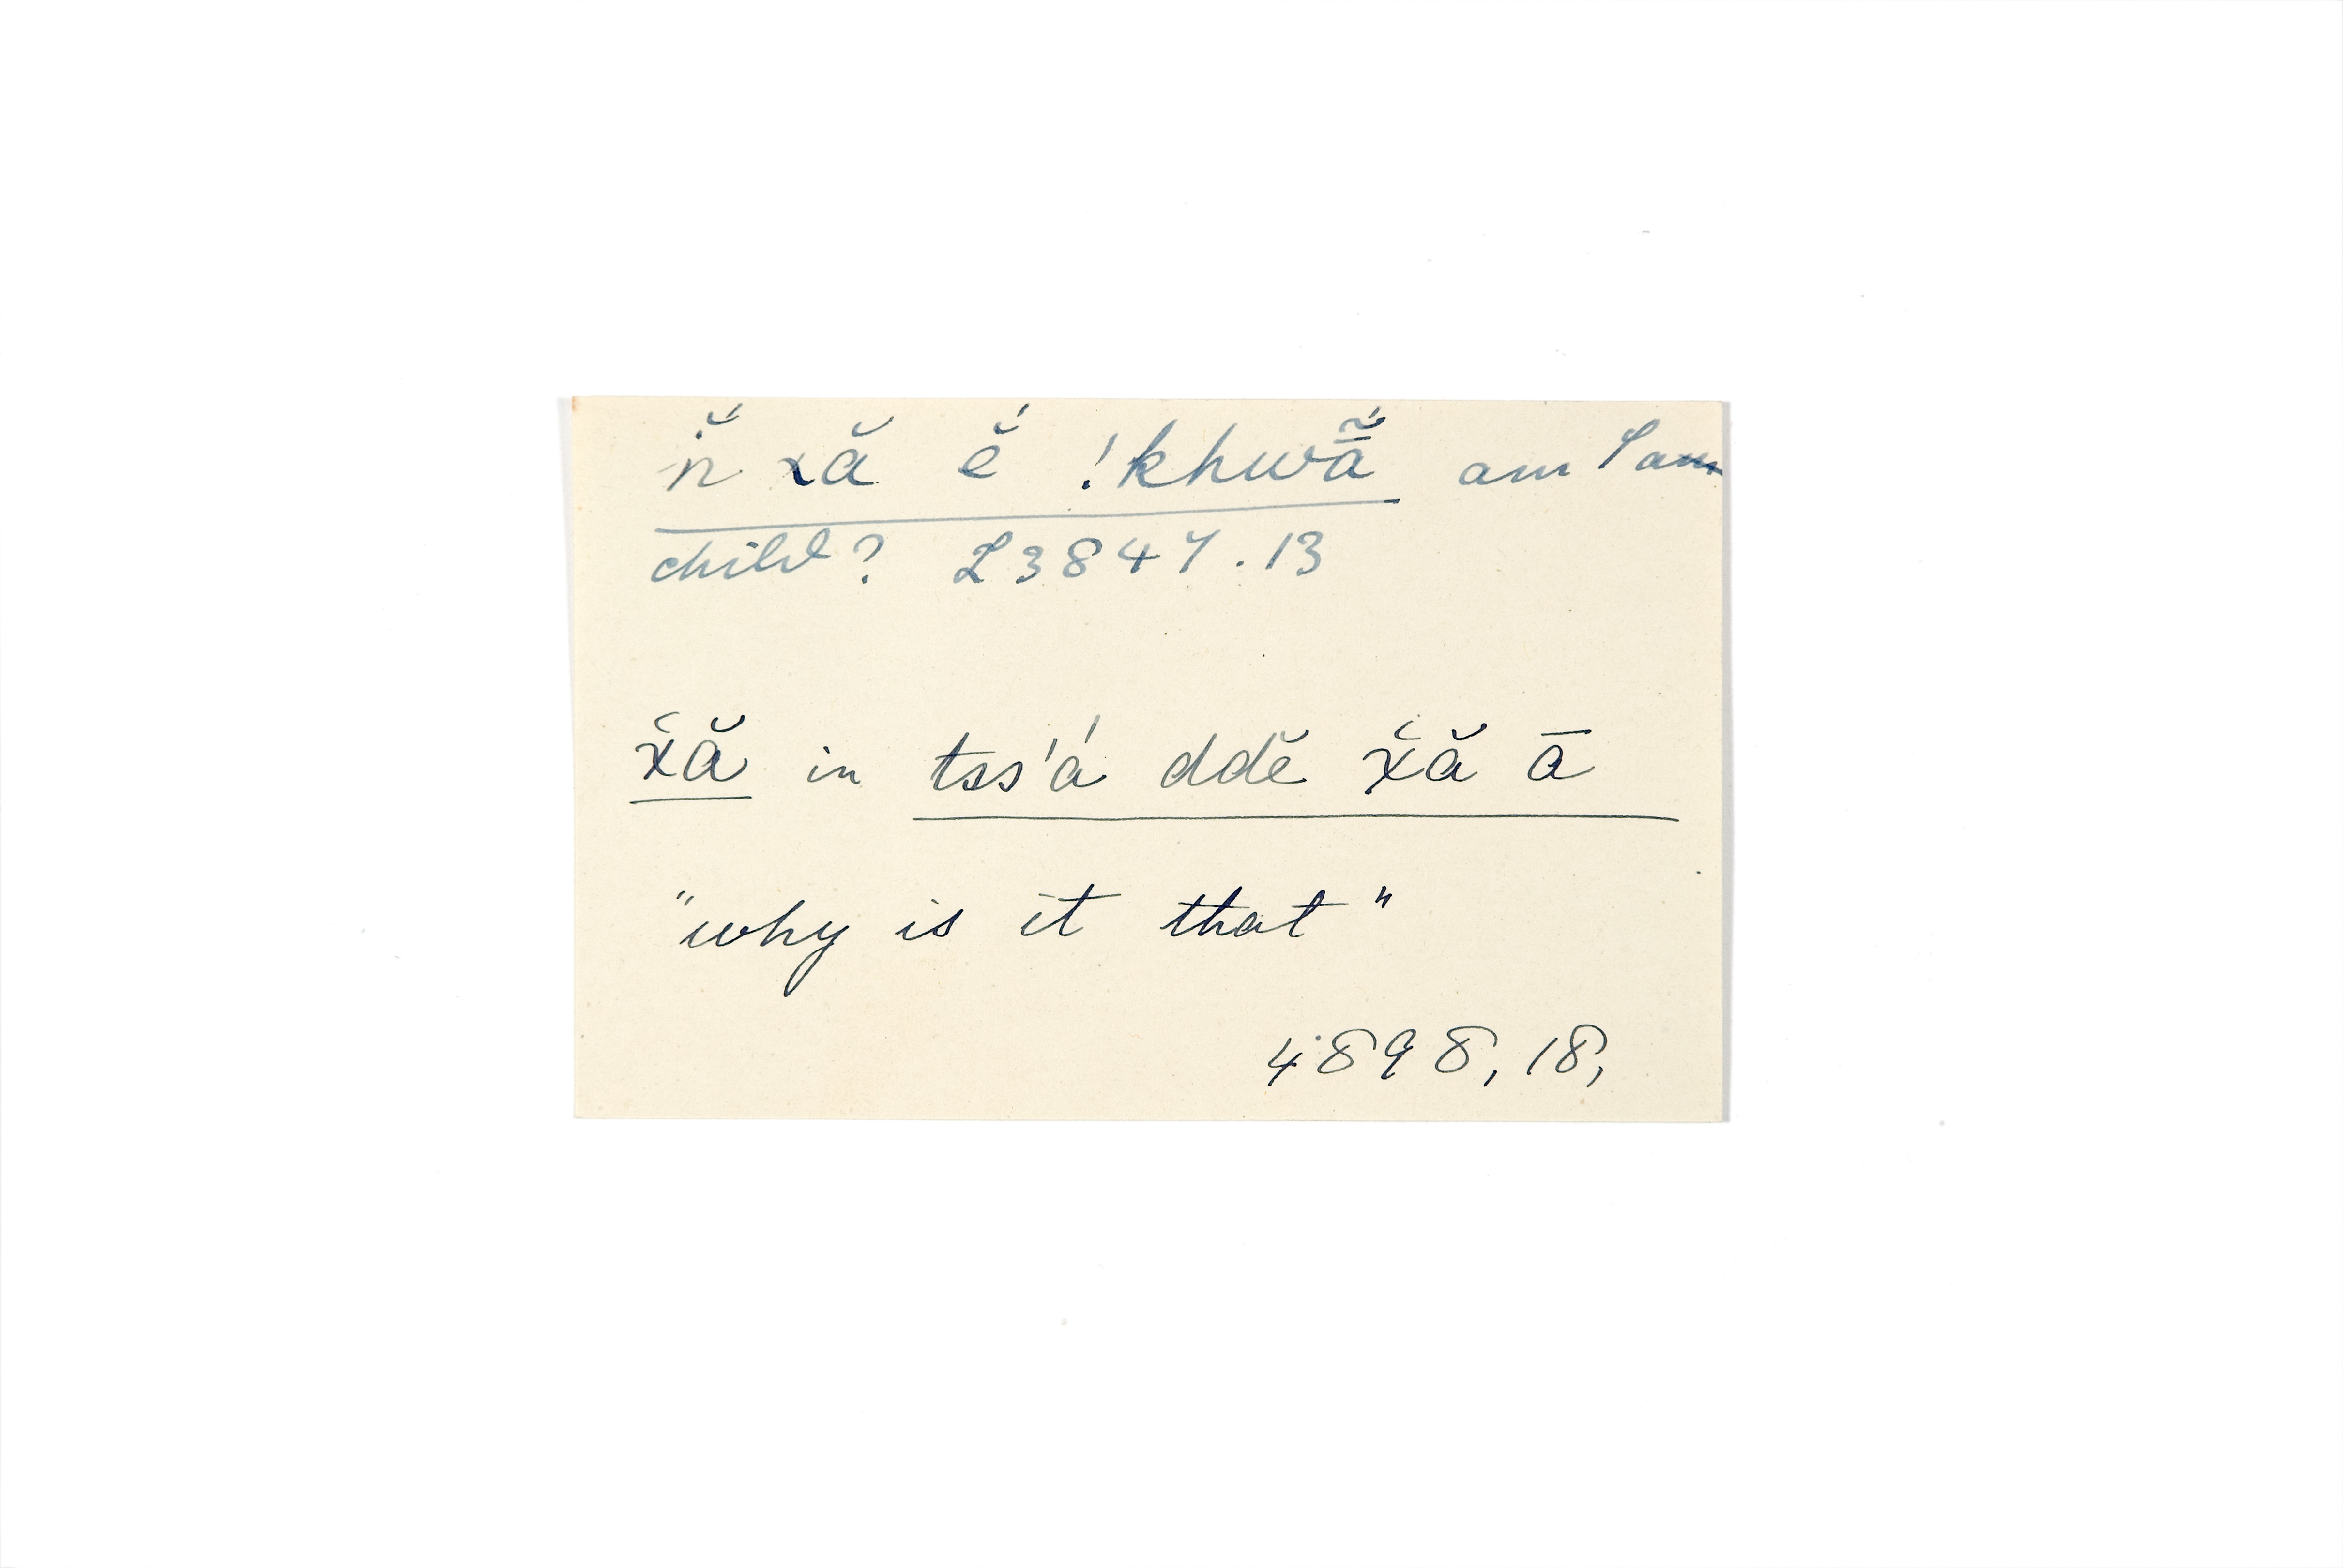 ṅ̆́ xă ĕ́ !khwā̆̃́ am I am
child? L 3847.13
x̆ă in tss'á ddĕ x̆ă ā
"why is it that"
4898, 18,